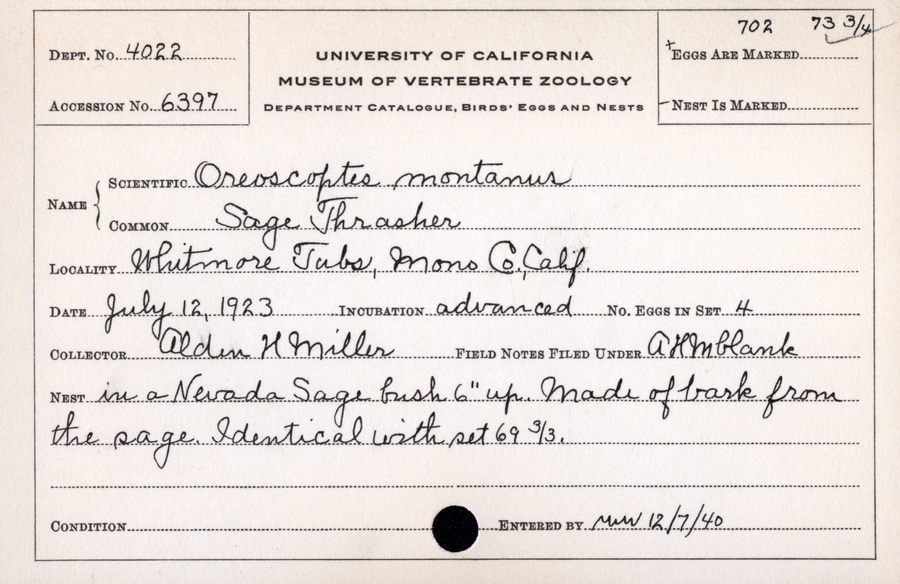 702 73 3/4
DEPT. NO. 4022
UNIVERSITY OF CALIFORNIA
+EGGS ARE MARKED
MUSEUM OF VERTEBRATE ZOOLOGY
ACCESSION NO. 6397
DEPARTMENT CATALOGUE, BIRDS' EGGS AND NESTS
NEST IS MARKED
NAME
SCIENTIFIC Oreoscoptes montanus
COMMON Sage Thrasher
LOCALITY Whitmore Tubs, Mono Co., Calif.
DATE July 12, 1923 INCUBATION advanced NO. EGGS IN SET 4
COLLECTOR Alden H Miller FIELD NOTES FILED UNDER AHMblank
NEST in a Nevada Sage bush 6" up. Made of bark from
the sage. Identical with set 69 3/3.
CONDITION ENTERED BY 12/7/40